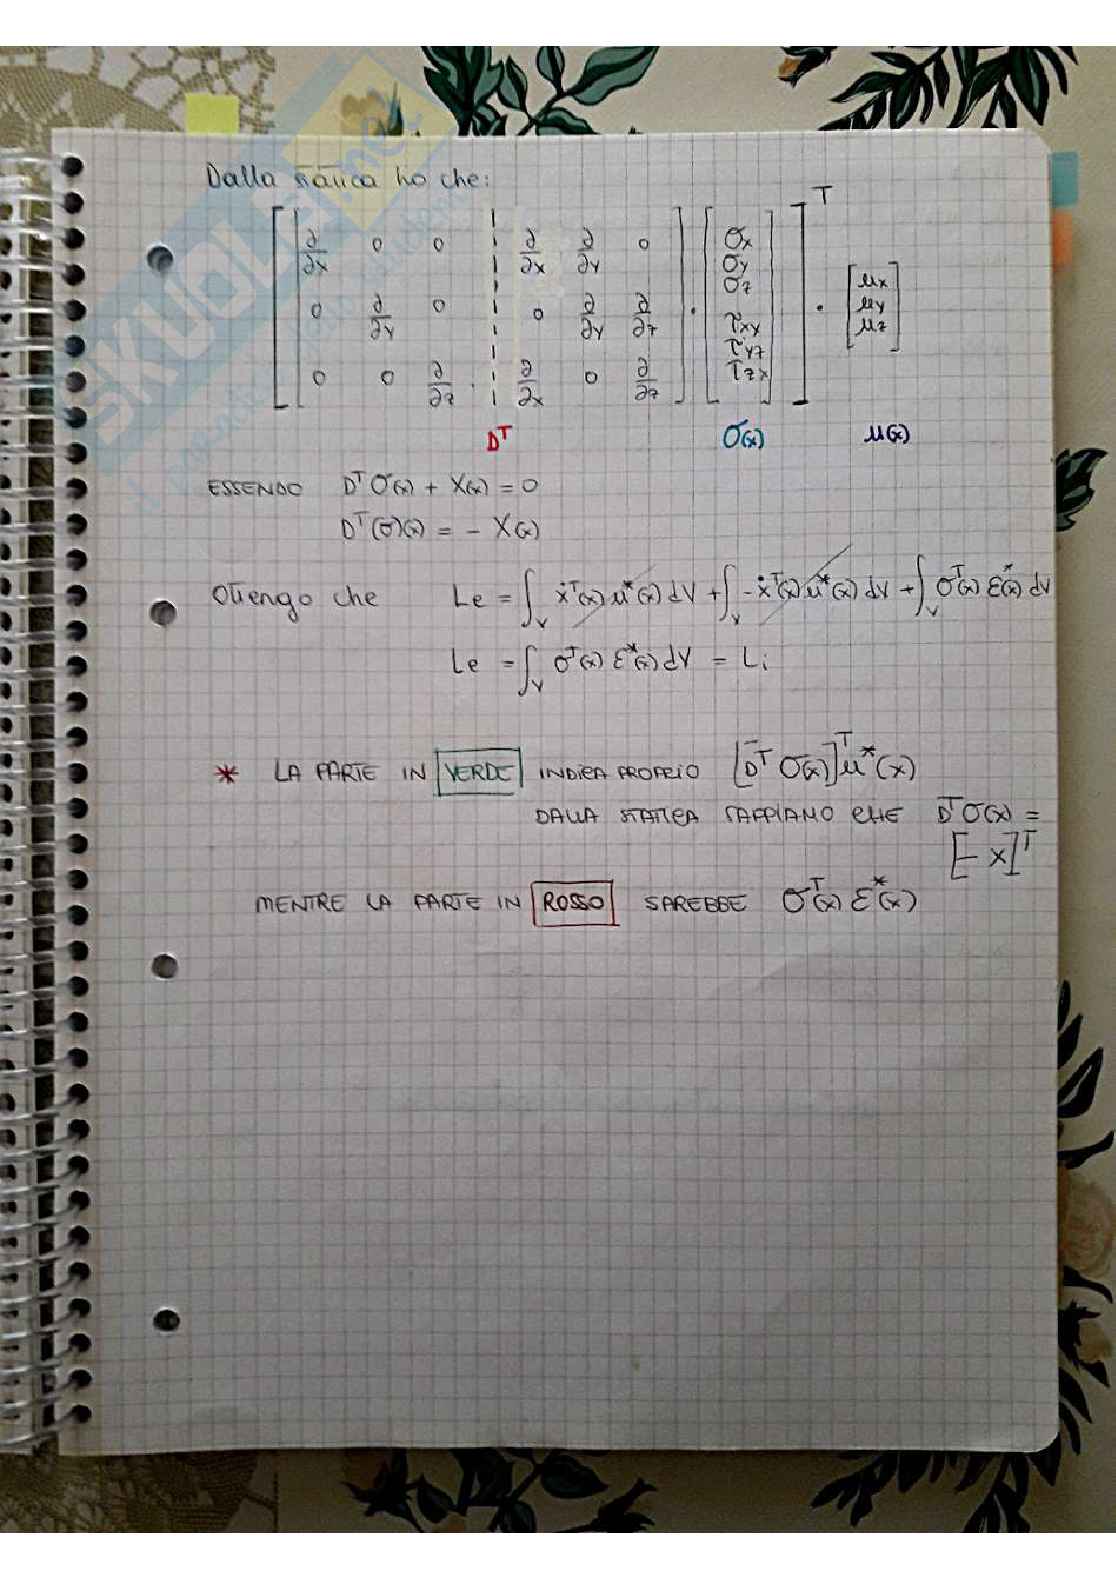 Dalla statica ho che:
[ [ ∂/∂x 0 0 ¦ ∂/∂x ∂/∂y 0 ] · [ σx ] ]T
[ 0 ∂/∂y 0 ¦ 0 ∂/∂y ∂/∂z ] [ σy σz τxy ] · [ ux uy uz ]
[ 0 0 ∂/∂z ¦ ∂/∂x 0 ∂/∂z ] [ τyz τzx ]
DT σ(x) u(x)
ESSENDO DT σ(x) + X(x) = 0
DT(σ)(x) = - X(x)
Ottengo che Le = ∫V ẋT(x) u*(x) dV + ∫V -ẋT(x) u*(x) dV + ∫V σT(x) ε*(x) dV
Le = ∫V σT(x) ε*(x) dV = Li
* LA PARTE IN VERDE INDICA PROPRIO [DT σ(x)]T u*(x)
DALLA STATICA SAPPIAMO CHE DT σ(x) =
[-X]T
MENTRE LA PARTE IN ROSSO SAREBBE σT(x) ε*(x)
SKUOLA.net